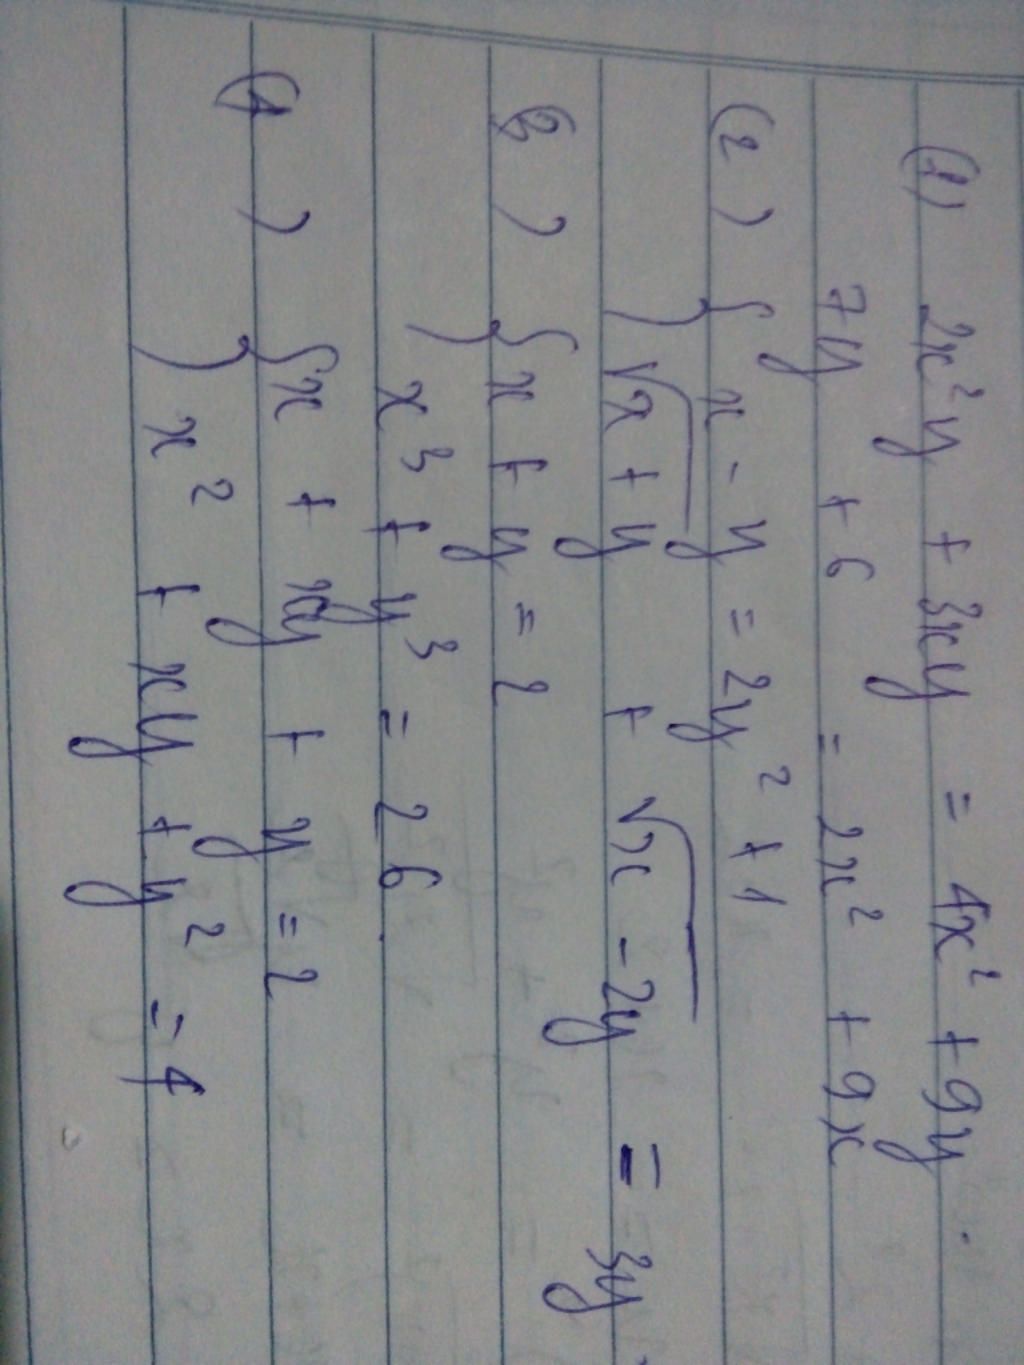 (1) 2x²y + 3xy = 4x² + 9y.
7y + 6 = 2x² + 9x
(2) { x - y = 2y² + 1
√x + y + √x - 2y = 3y
3) { x + y = 2
x³ + y³ = 26.
4) { x + xy + y = 2
x² + xy + y² = 4